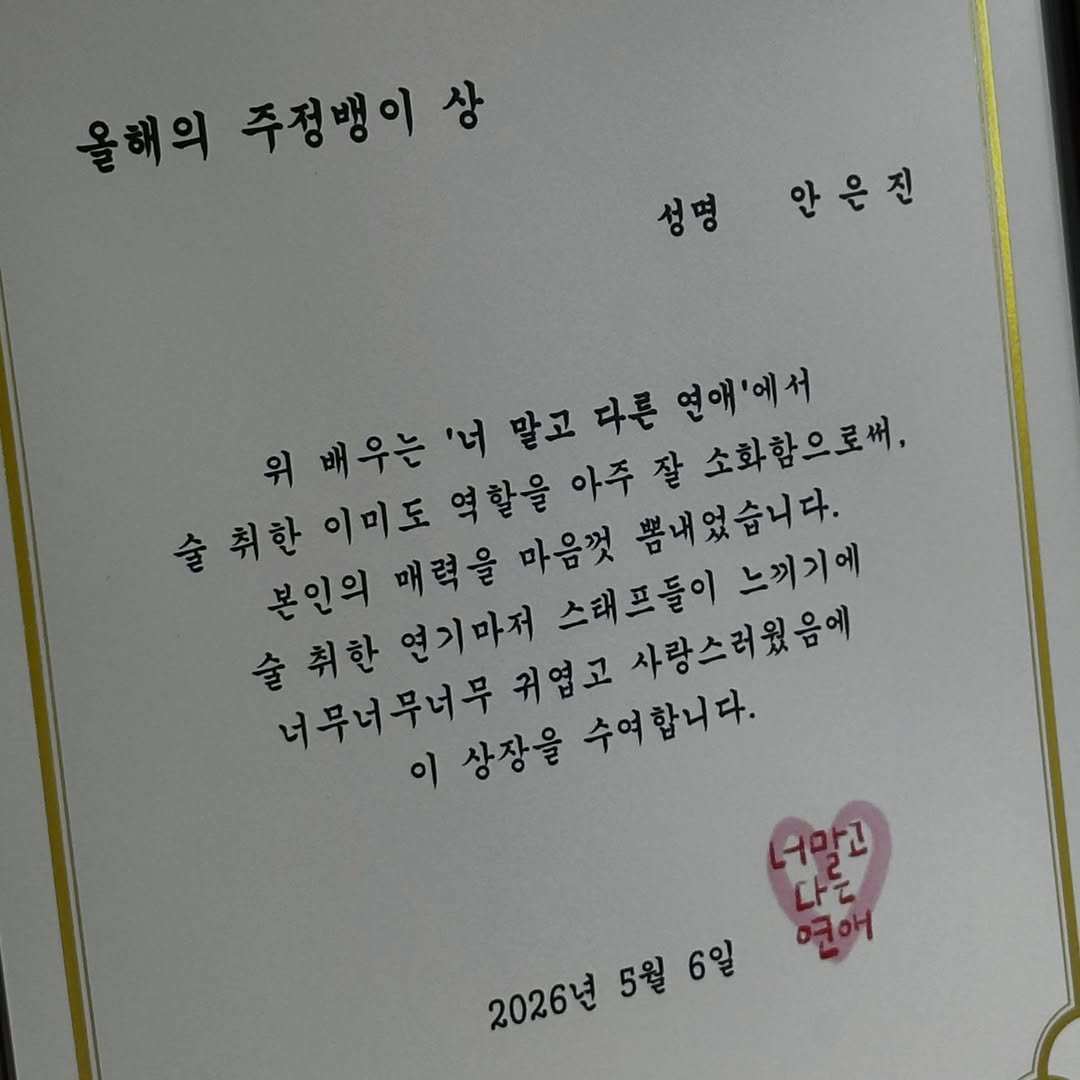 올해의 주정뱅이 상
성명 안은진
위 배우는 '너 말고 다른 연애'에서
술 취한 이미도 역할을 아주 잘 소화함으로써,
본인의 매력을 마음껏 뽐내었습니다.
술 취한 연기마저 스태프들이 느끼기에
너무너무너무 귀엽고 사랑스러웠음에
이 상장을 수여합니다.
너말고
다른
연애
2026년 5월 6일